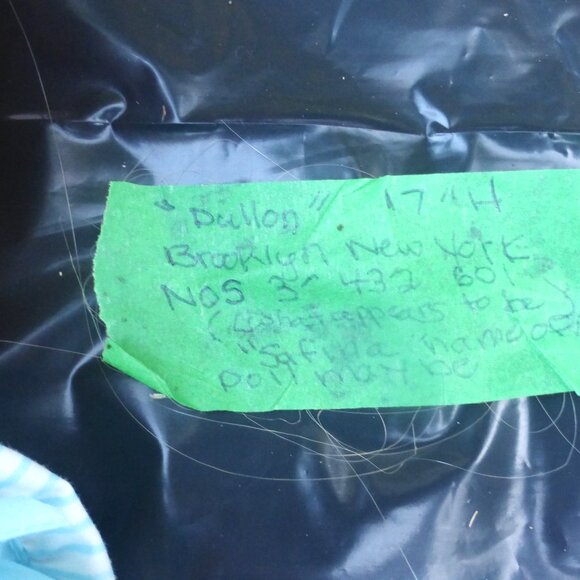 "Dullon" 17"H
Brooklyn New York
NOS 3- 432 601
( appears to be)
"Safina name of
Doll may be